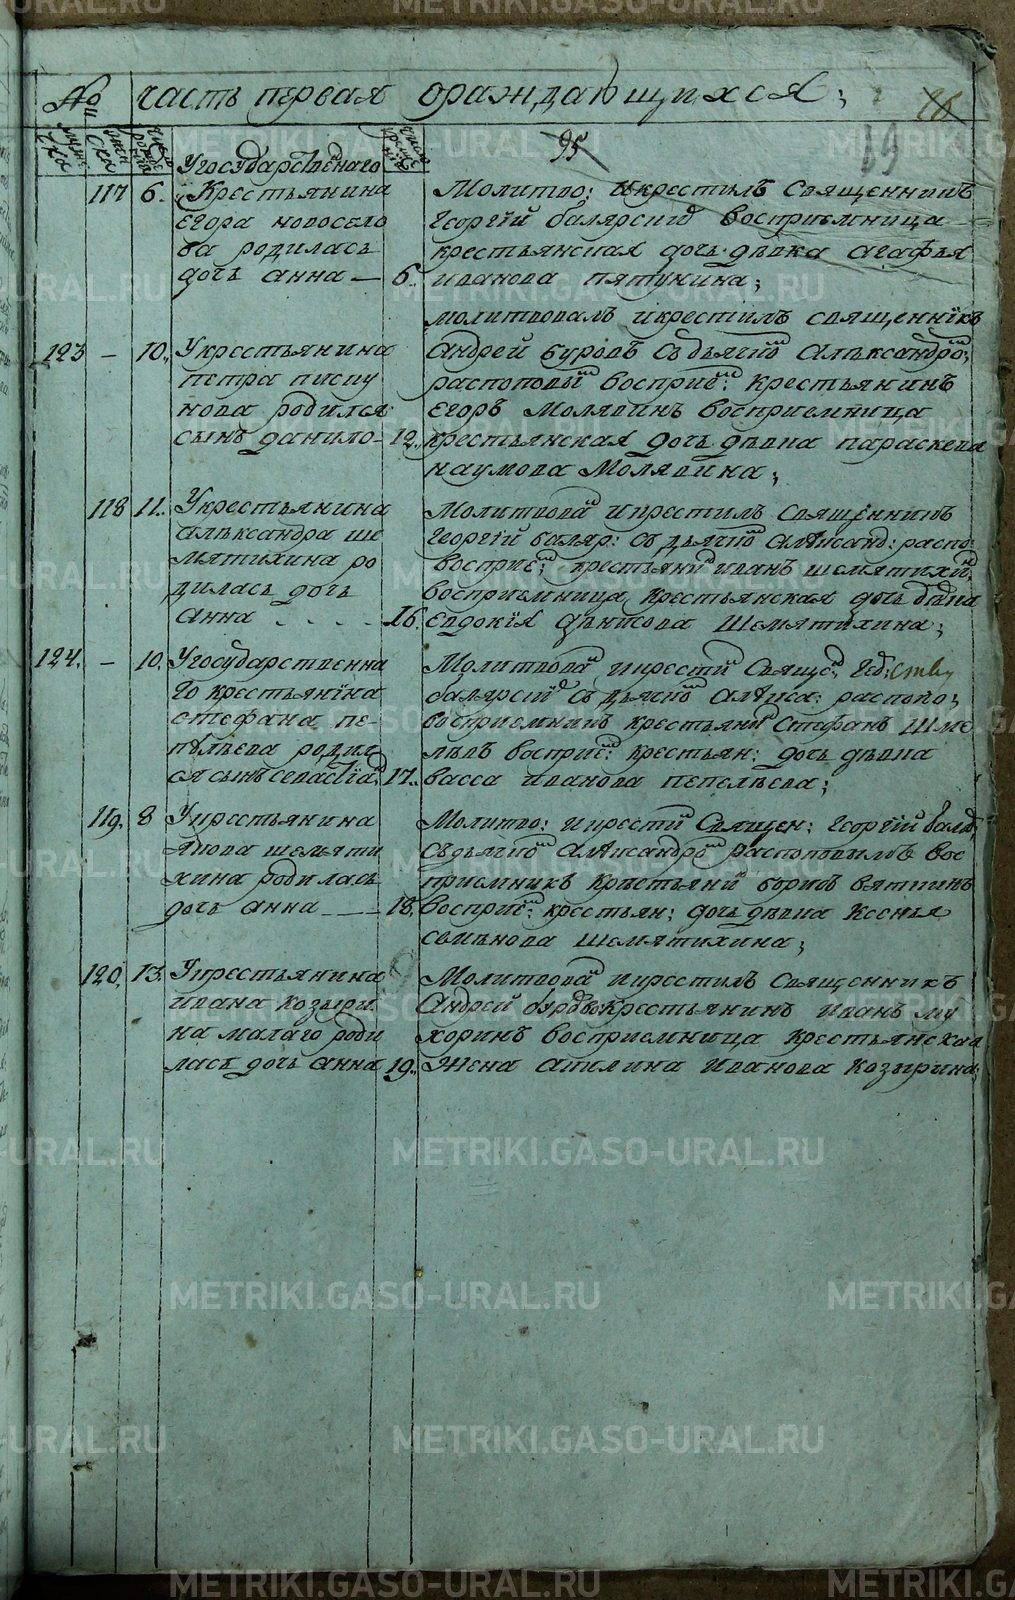 № часть первая ораждающихся;
95
26
69
мужеска
женска
число рождения
число крещения
117 6. Угосударственного
Крестьянина
Егора новосело
ва родилась
дочь анна — 6.
Молитво: и крестилъ Священникъ
Георгій балярскій восприемница
крестьянская дочь дѣвка агафья
иванова пятунина;
123 — 10. Укрестьянина
петра писцу
нова родился
сынъ данило — 12.
молитвовалъ и крестилъ священнікъ
Андрей буровъ съдьячко Алѣксандро
распоповы восприе: крестьянинъ
егоръ Молявинъ восприемница
крестьянская дочь дѣвка параскева
наумова Молявина;
118 11. Укрестьянина
алѣксандра ше
мятихина ро
дилась дочь
Анна . . . . 16.
Молитвова и крестилъ священникъ
георгій баляр: съ дьячко алѣксанд: распо:
восприе: крестьяни иванъ шемятихи:
восприемница крестьянская дочь дѣвка
евдокія денисова Шемятихина;
124. — 10. Угосударственна
го крестьяніна
стефана пе-
пѣльева родил
ся сынъ севастіа 17.
Молитвова и крести Свяще: Гео:
балярскі съ дьячко алѣкса: распопо:
восприемникъ крестьяни Стефанъ Шме
лѣвъ восприе: крестьян: дочь дѣвка
васса иванова пепелѣева;
119. 8 Укрестьянина
Якова шемяти
хина родилась
дочь анна — — 18.
Молитво: и крести Священ: Георгій баля
Съдьячко алѣксандро распоповымъ вос
приемникъ крѣстьяни борисъ вяткинъ
восприе: крестьян: дочь дѣвка Ксенья
семѣнова шемятихина;
120. 13. Укрестьянина
ивана козыри
на малаго роди
лась дочь анна 19.
Молитвова и крестилъ Священникъ
Андрей буровъ крестьянинъ иванъ му
хоринъ восприемница крестьянская
Жена акилина иванова козырина;
METRIKI.GASO-URAL.RU